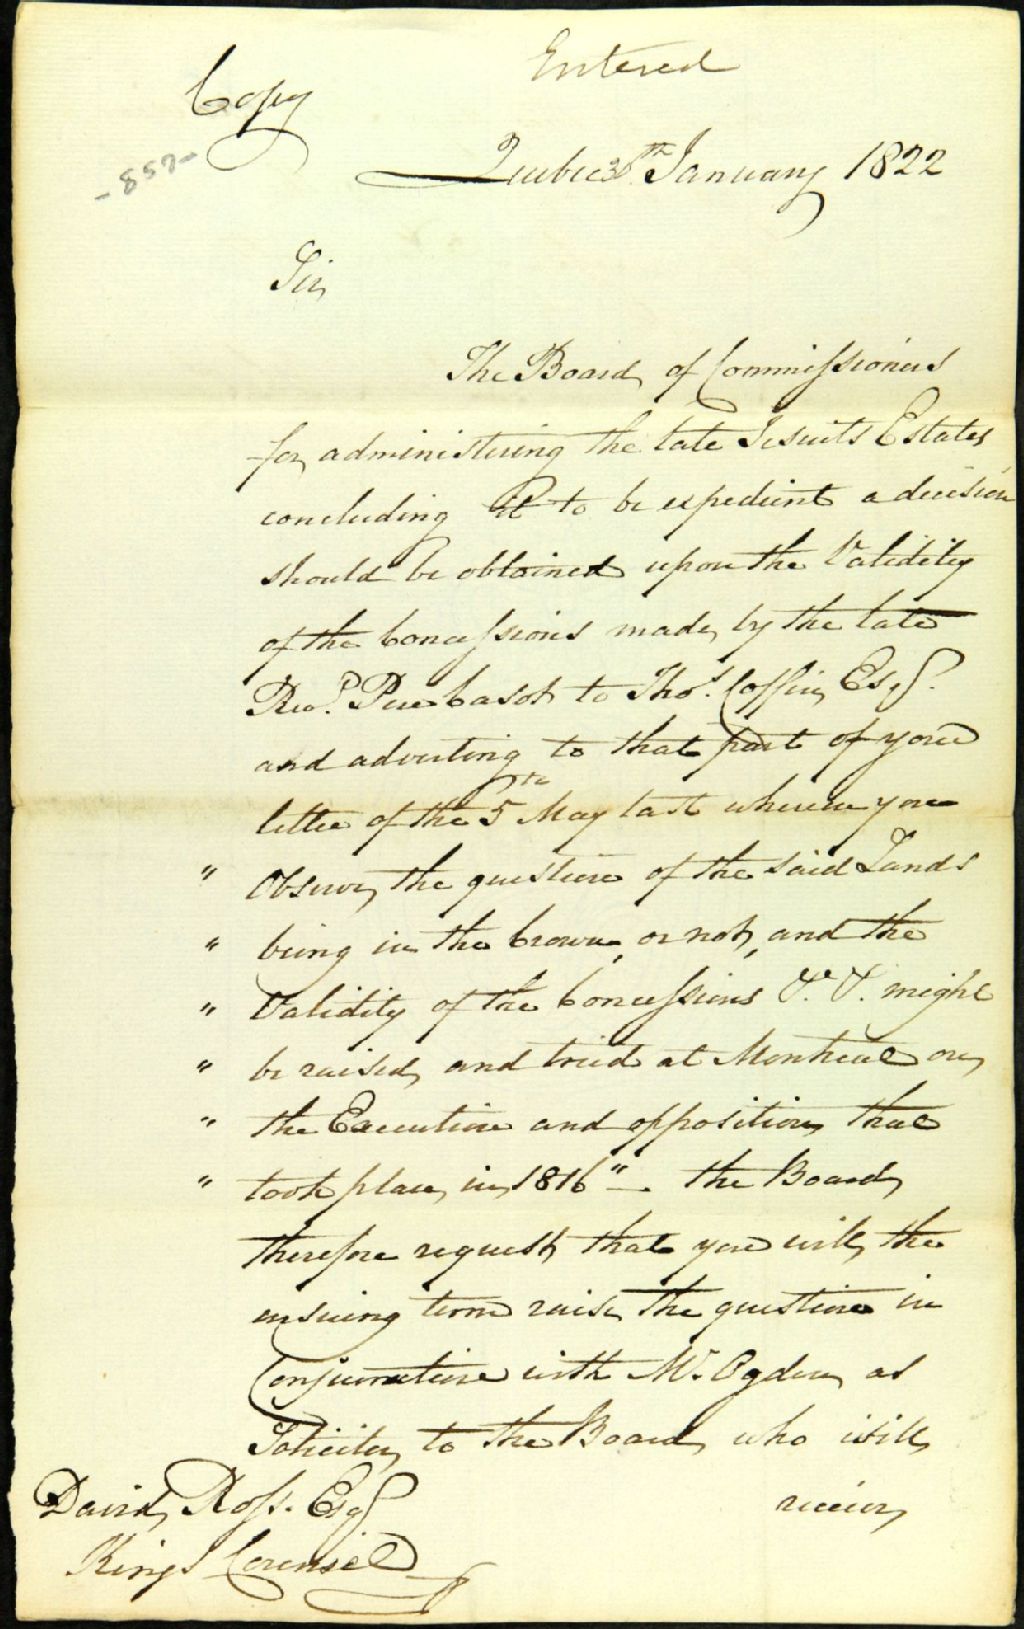 Entered
Copy
-857-
Quebec 30th January 1822
Sir,
The Board of Commissioners
for administering the late Jesuits Estates
concluding it to be expedient a decision
should be obtained upon the Validity
of the Concessions made by the late
Revd. Pere Casot to Thos. Coffin Esqr.
and adverting to that part of your
letter of the 5th May last wherein you
" Observe, the question of the said Lands
" being in the Crown, or not, and the
" Validity of the Concessions &c. &. might
" be raised, and tried at Montreal on
" the Execution and opposition that
" took place in 1816" -. the Board
therefore request that you will, the
ensuing term raise the question in
Conjunction with Mr. Ogden, as
Soliciter to the Board, who will
receive
David Ross. Esqr
Kings Counsel